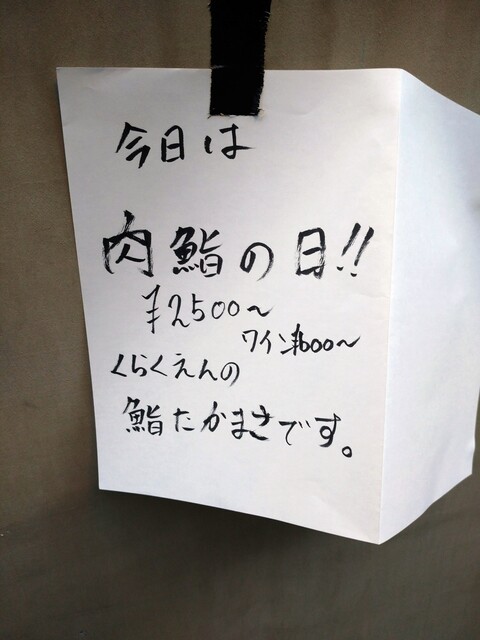 今日は
肉鮨の日!!
¥2500~
ワイン¥600~
くらくえんの
鮨たかまさです。